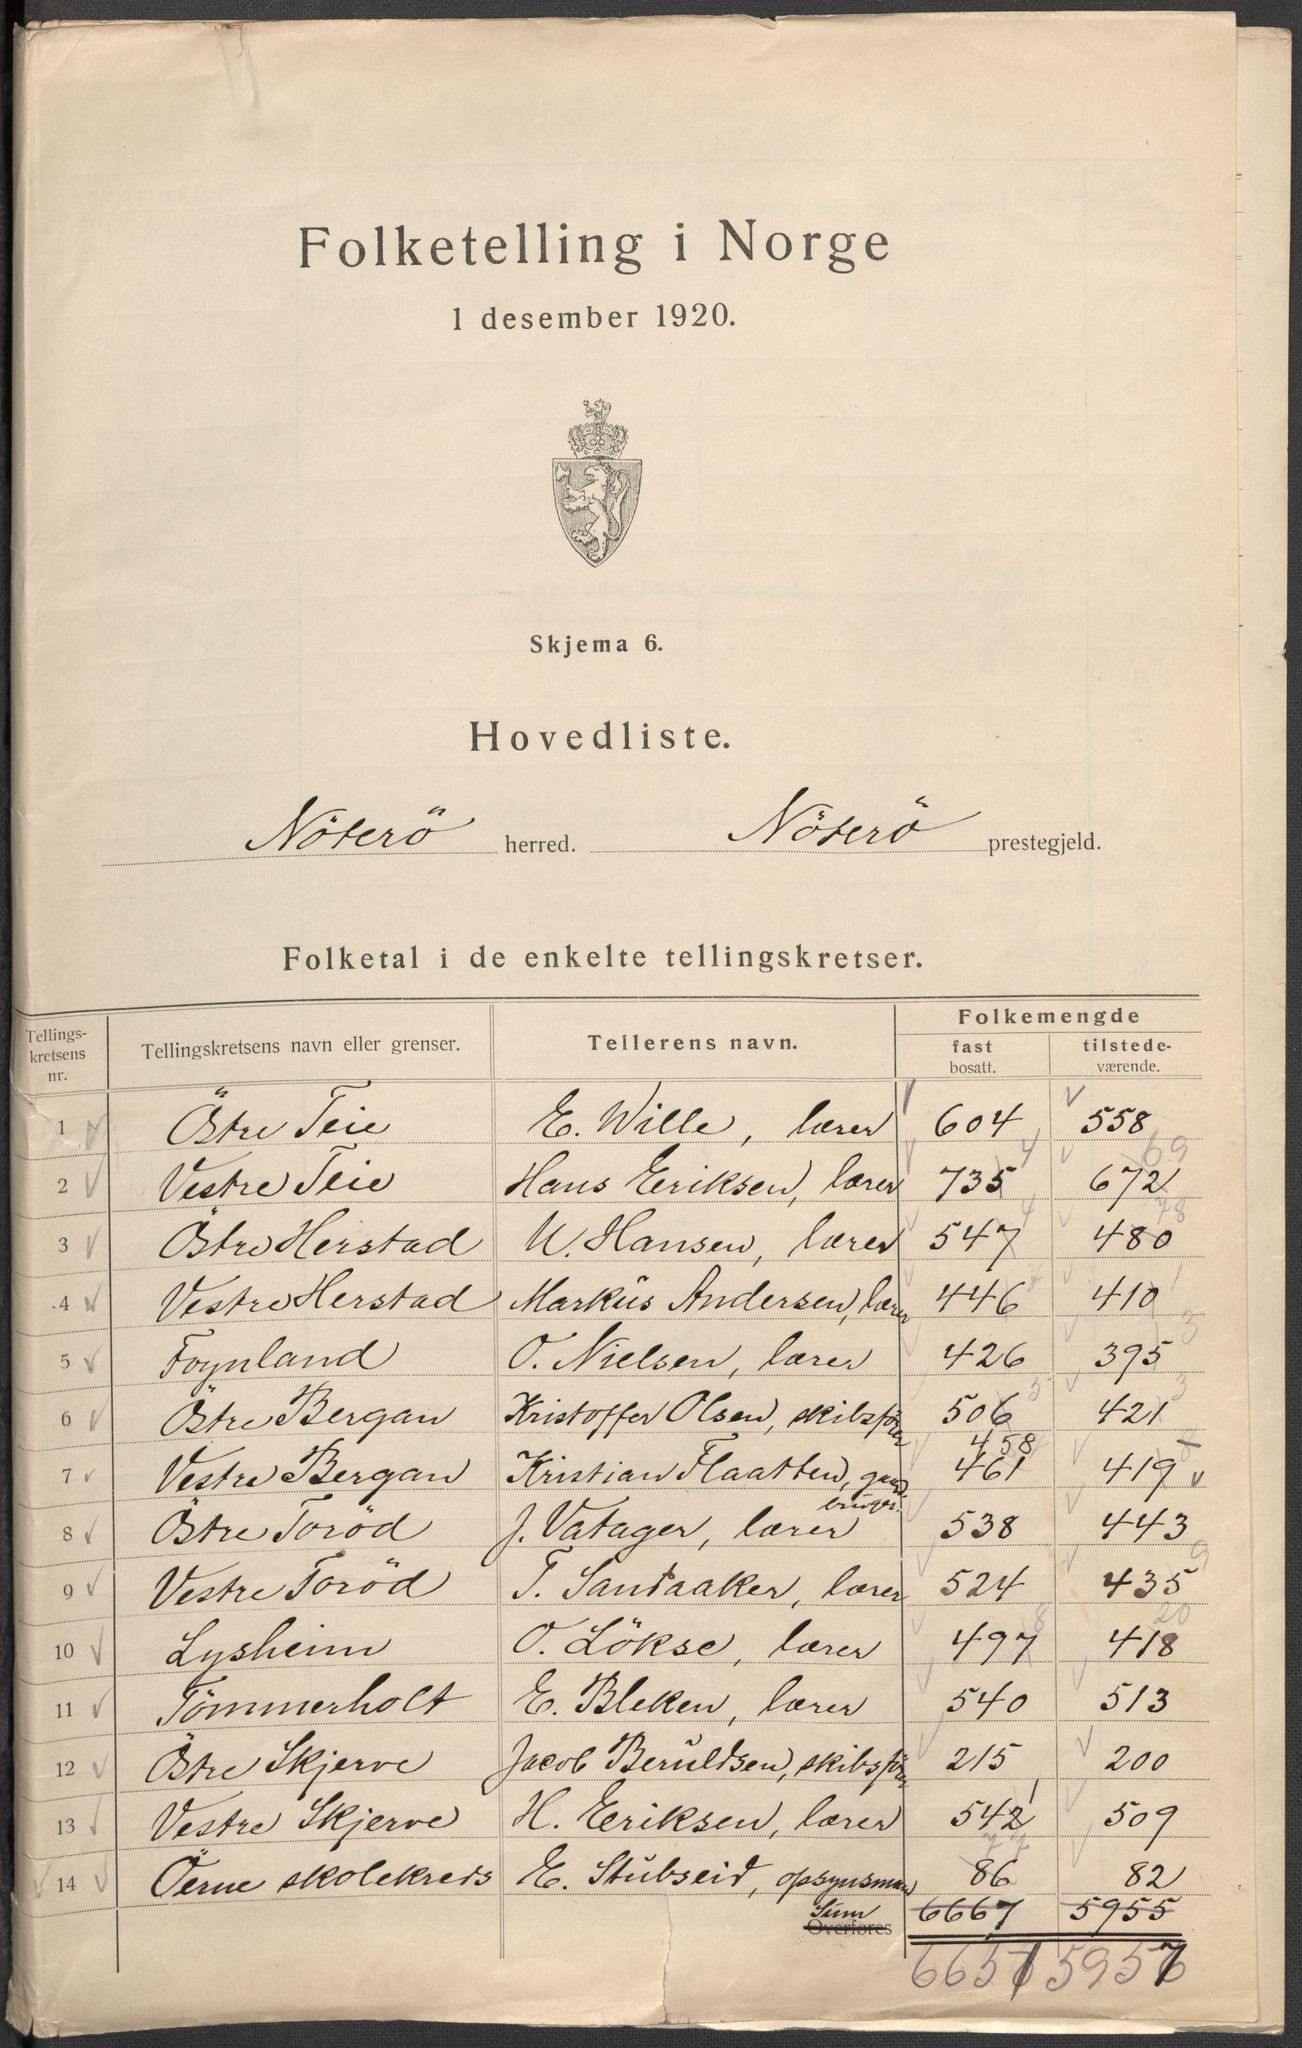 Folketelling i Norge
1 desember 1920.
Skjema 6.
Hovedliste.
Nöterö herred. Nöterö prestegjeld.
Folketal i de enkelte tellingskretser.
Tellings-kretsens nr. Tellingskretsens navn eller grenser. Tellerens navn. Folkemengde
fast bosatt. tilstede-værende.
1 Östre Teie E. Wille, lærer 604 558
2 Vestre Teie Hans Eriksen, lærer 735 4 672 69
3 Östre Herstad M. Hansen, lærer 547 4 480 78
4 Vestre Herstad Markus Andersen, lærer 446 410 1
5 Foynland O. Nielsen, lærer 426 395 3
6 Östre Bergan Kristoffer Olsen, skibsfører 506 5 421 3
7 Vestre Bergan Kristian Flaatten, gaardbruger. 461 458 419
8 Östre Toröd J. Vatager, lærer 538 443
9 Vestre Toröd T. Sandaaker, lærer 524 435 9
10 Lysheim O. Lökse, lærer 497 8 418 20
11 Tömmerholt E. Bleken, lærer 540 513
12 Östre Skjerve Jacob Beruldsen, skibsfører 215 200
13 Vestre Skjerve H. Eriksen, lærer 542 1 509
14 Öerne skolekreds E. Stubseid, opsynsmand 86 77 82
Sum
Overføres 6667 5955
6657 5957